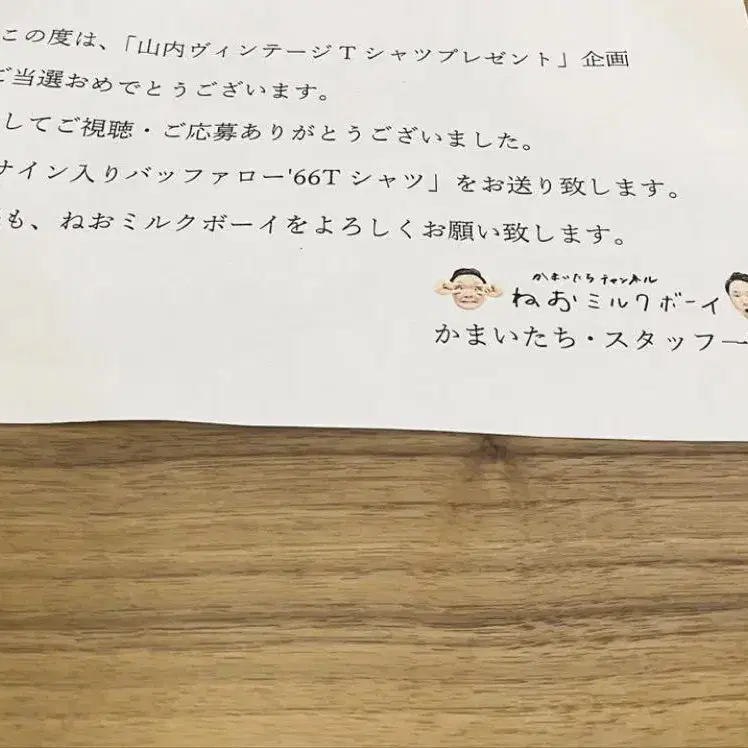 この度は、「山内ヴィンテージTシャツプレゼント」企画
ご当選おめでとうございます。
してご視聴・ご応募ありがとうございました。
ナイン入りバッファロー'66Tシャツ」をお送り致します。
も、ねおミルクボーイをよろしくお願い致します。
かまいたちチャンネル
ねおミルクボーイ
かまいたち・スタッフ一